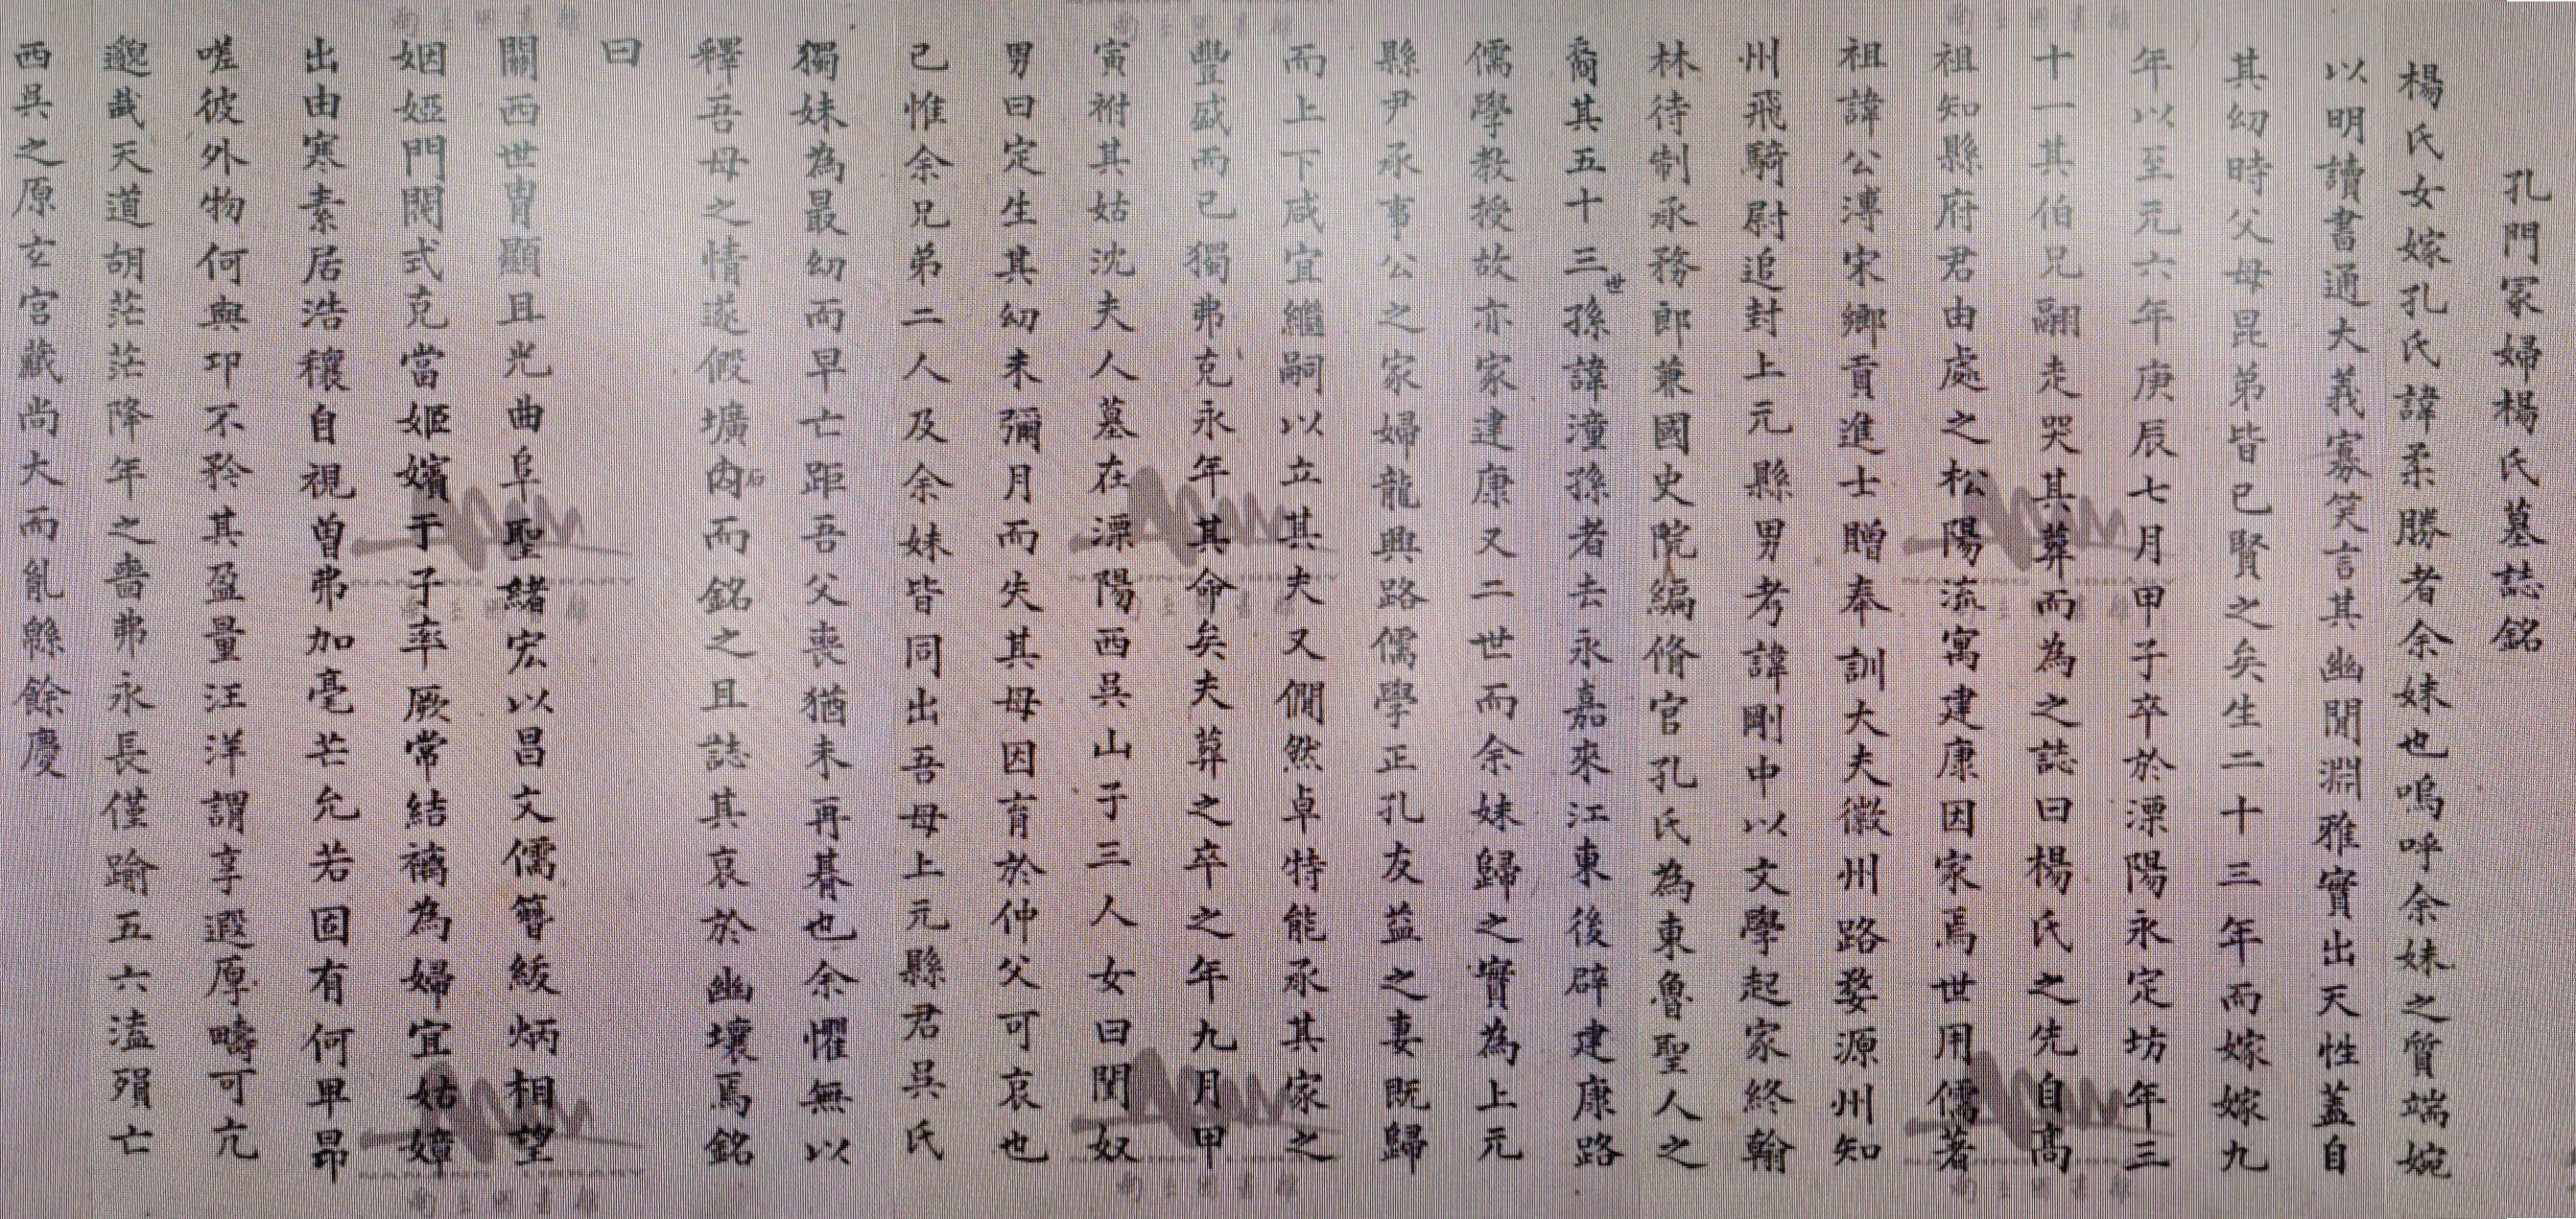 孔門冢婦楊氏墓誌銘
楊氏女嫁孔氏諱柔勝者余妹也嗚呼余妹之質端婉
以明讀書通大義寡笑言其幽閒淵雅實出天性蓋自
其幼時父母昆弟皆已賢之矣生二十三年而嫁嫁九
年以至元六年庚辰七月甲子卒於溧陽永定坊年三
十一其伯兄翮走哭其葬而為之誌曰楊氏之先自高
祖知縣府君由處之松陽流寓建康因家焉世用儒著
祖諱公溥宋鄉貢進士贈奉訓大夫徽州路婺源州知
州飛騎尉追封上元縣男考諱剛中以文學起家終翰
林待制承務郎兼國史院編脩官孔氏為東魯聖人之
裔其五十三世孫諱潼孫者去永嘉來江東後辟建康路
儒學教授故亦家建康又二世而余妹歸之實為上元
縣尹承事公之家婦龍興路儒學正孔友益之妻既歸
而上下咸宜繼嗣以立其夫又僩然卓特能承其家之
豐盛而己獨弗克永年其命矣夫葬之卒之年九月甲
寅祔其姑沈夫人墓在溧陽西吳山子三人女曰閏奴
男曰定生其幼未彌月而失其母因育於仲父可哀也
已惟余兄弟二人及余妹皆同出吾母上元縣君吳氏
獨妹為最幼而早亡距吾父喪猶未再朞也余懼無以
釋吾母之情遂假壙內石而銘之且誌其哀於幽壤焉銘
曰
關西世冑顯且光曲阜聖緒宏以昌文儒簪紱炳相望
姻婭門閥式克當姬嬪于子率厥常結褵為婦宜姑嫜
出由寒素居浩穰自視曾弗加毫芒允若固有何卑昂
嗟彼外物何與卬不矜其盈量汪洋謂享遐厚疇可亢
邈哉天道胡茫茫降年之嗇弗永長僅踰五六溘殞亡
西吳之原玄宮藏尚大而胤緜餘慶